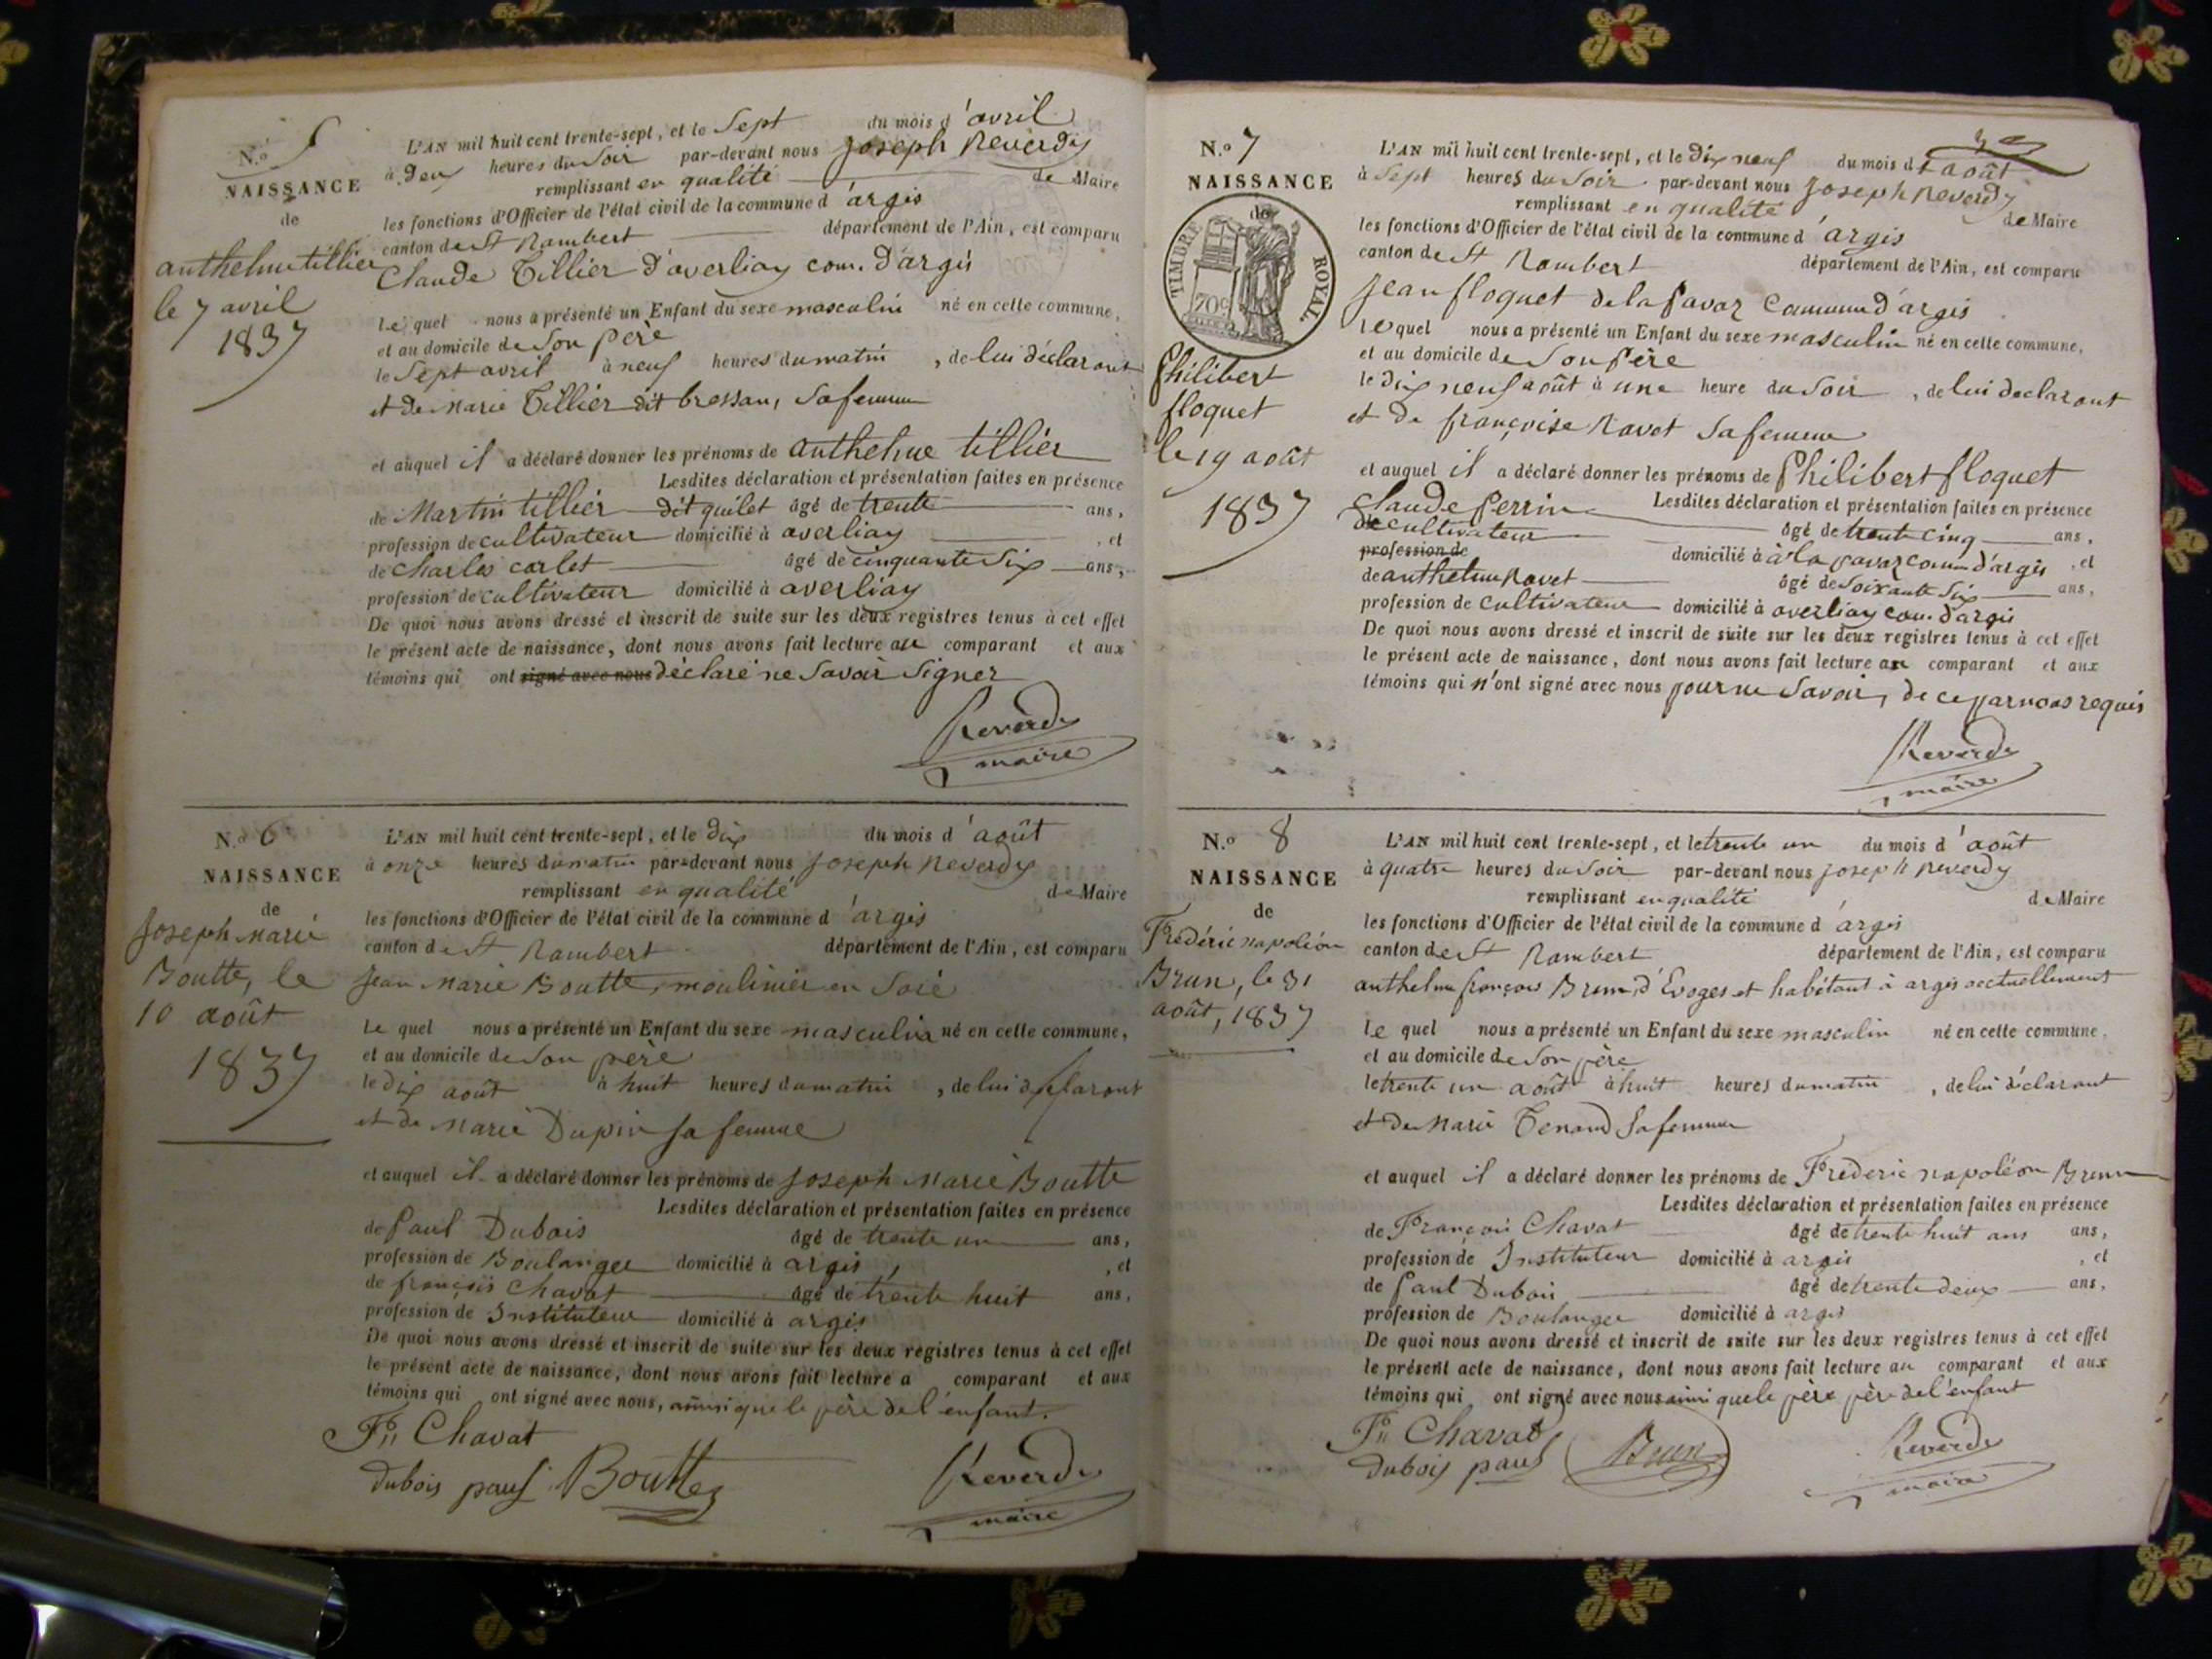 N.o 5
NAISSANCE
de
anthelme tillier
le 7 avril
1837
L'AN mil huit cent trente-sept, et le Sept du mois d'avril
à deux heures du Soir par-devant nous Joseph Reverdy
remplissant en qualité de Maire
les fonctions d'Officier de l'état civil de la commune d'argis
canton de St Rambert département de l'Ain, est comparu
Claude Tillier d'averliay com. d'argis
Le quel nous a présenté un Enfant du sexe masculin né en cette commune,
et au domicile de Son père
le Sept avril à neuf heures du matin, de lui déclarant
et de Marie Tillier dit bressan, Sa femme
et auquel il a déclaré donner les prénoms de anthelme tillier
Lesdites déclaration et présentation faites en présence
de Martin tillier dit quilet âgé de trente ans,
profession de cultivateur domicilié à averliay, et
de Charles carlet âgé de cinquante Six ans,
profession de cultivateur domicilié à averliay
De quoi nous avons dressé et inscrit de suite sur les deux registres tenus à cet effet
le présent acte de naissance, dont nous avons fait lecture au comparant et aux
témoins qui ont signé avec nous déclaré ne Savoir Signer
Reverdy
maire
N.o 6
NAISSANCE
de
Joseph Marie
Boutte, le
10 août
1837
L'AN mil huit cent trente-sept, et le dix du mois d'août
à onze heures du matin par-devant nous Joseph Reverdy
remplissant en qualité de Maire
les fonctions d'Officier de l'état civil de la commune d'argis
canton de St Rambert département de l'Ain, est comparu
Jean Marie Boutte, moulinier en Soie
Le quel nous a présenté un Enfant du sexe masculin né en cette commune,
et au domicile de Son père
le dix août à huit heures du matin, de lui déclarant
et de Marie Dupin Sa femme
et auquel il a déclaré donner les prénoms de Joseph Marie Boutte
Lesdites déclaration et présentation faites en présence
de Paul Dubois âgé de trente un ans,
profession de Boulanger domicilié à argis, et
de françois Chavat âgé de trente huit ans,
profession de Instituteur domicilié à argis
De quoi nous avons dressé et inscrit de suite sur les deux registres tenus à cet effet
le présent acte de naissance, dont nous avons fait lecture a comparant et aux
témoins qui ont signé avec nous, ainsi que le père de l'enfant.
Fs Chavat
dubois paul Bouttez Reverdy
maire
N.o 7
NAISSANCE
de
TIMBRE ROYAL
70c
Philibert
floquet
le 19 août
1837
L'AN mil huit cent trente-sept, et le dix neuf du mois d'août
à Sept heures du Soir par-devant nous Joseph Reverdy
remplissant en qualité de Maire
les fonctions d'Officier de l'état civil de la commune d'argis
canton de St Rambert département de l'Ain, est comparu
Jean floquet de la pavaz Commune d'argis
le quel nous a présenté un Enfant du sexe masculin né en cette commune,
et au domicile de Son Père
le dix neuf août à une heure du Soir, de lui declarant
et de françoise Ravet Sa femme
et auquel il a déclaré donner les prénoms de Philibert floquet
Lesdites déclaration et présentation faites en présence
Claude Perrin
de cultivateur âgé de trente cinq ans,
profession de domicilié à à la pavaz comm d'argis, et
de anthelme Ravet âgé de Soixante Six ans,
profession de cultivateur domicilié à averliay com. d'argis
De quoi nous avons dressé et inscrit de suite sur les deux registres tenus à cet effet
le présent acte de naissance, dont nous avons fait lecture au comparant et aux
témoins qui n'ont signé avec nous pour ne Savoir, de ce par nous requis
Reverdy
maire
N.o 8
NAISSANCE
de
Frédéric napoléon
Brun, le 31
août, 1837
L'AN mil huit cent trente-sept, et le trente un du mois d'août
à quatre heures du Soir par-devant nous Joseph Reverdy
remplissant en qualité de Maire
les fonctions d'Officier de l'état civil de la commune d'argis
canton de St Rambert département de l'Ain, est comparu
anthelme françois Brun, d'Evoges et habitant à argis actuellement
Le quel nous a présenté un Enfant du sexe masculin né en cette commune,
et au domicile de Son père
le trente un août à huit heures du matin, de lui déclarant
et de Marie Tenand Sa femme
et auquel il a déclaré donner les prénoms de Fréderic napoléon Brun
Lesdites déclaration et présentation faites en présence
de François Chavat âgé de trente huit ans ans,
profession de Instituteur domicilié à argis, et
de Paul Dubois âgé de trente deux ans,
profession de Boulanger domicilié à argis
De quoi nous avons dressé et inscrit de suite sur les deux registres tenus à cet effet
le présent acte de naissance, dont nous avons fait lecture au comparant et aux
témoins qui ont signé avec nous ainsi que le père père de l'enfant
Fs Chavat
Dubois paul Brun Reverdy
maire